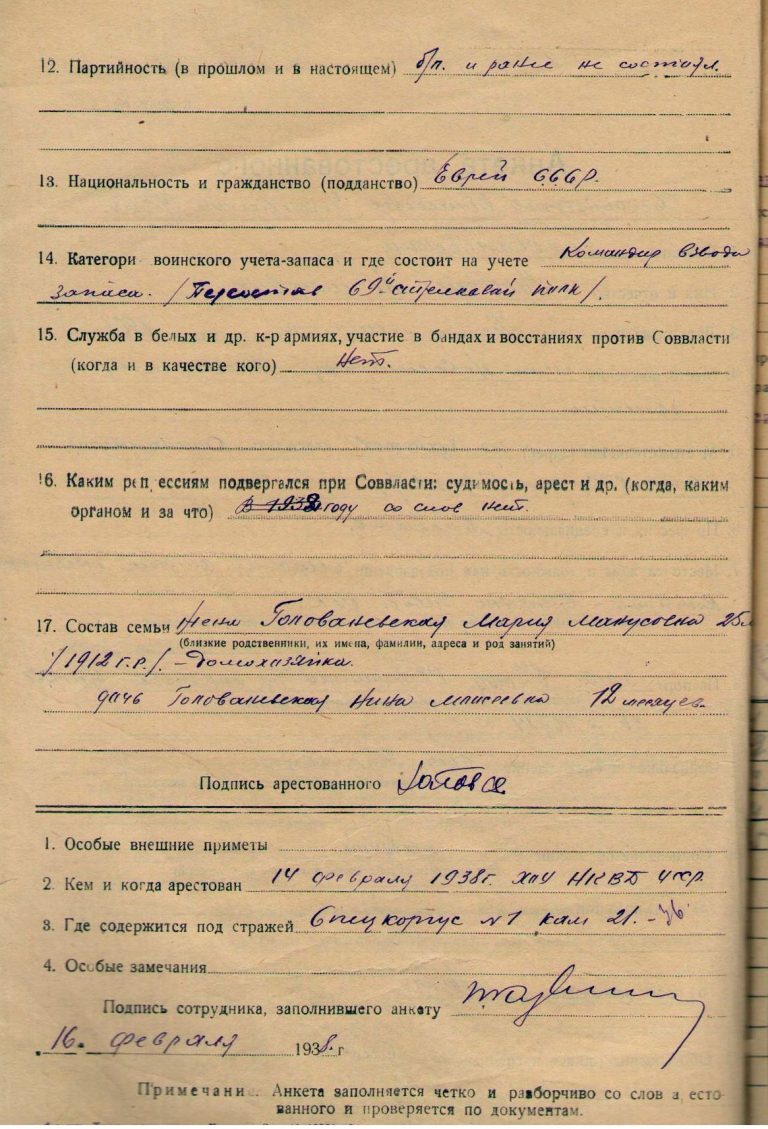 12. Партийность (в прошлом и в настоящем) б/п. и ранее не состоял.
13. Национальность и гражданство (подданство) Еврей СССР.
14. Категори воинского учета-запаса и где состоит на учете Командир взвода
запаса. / 69й стрелковый полк /.
15. Служба в белых и др. к-р армиях, участие в бандах и восстаниях против Соввласти
(когда и в качестве кого) Нет.
16. Каким реп ессиям подвергался при Соввласти: судимость, арест и др. (когда, каким
органом и за что) В 1938 году со слов нет.
17. Состав семьи Жена Голованевская Мария Манусовна 25л
(близкие родственники, их имена, фамилии, адреса и род занятий)
/1912 г.р./. - домохозяйка.
дочь Голованевская Нина Моисеевна 12 месяцев.
Подпись арестованного
1. Особые внешние приметы
2. Кем и когда арестован 14 февраля 1938г. ХПУ НКВД УССР.
3. Где содержится под стражей Спецкорпус №1 кам 21. -36
4. Особые замечания
Подпись сотрудника, заполнившего анкету
16. февраля 1938. г
Примечани . Анкета заполняется четко и разборчиво со слов а есто-
ванного и проверяется по документам.